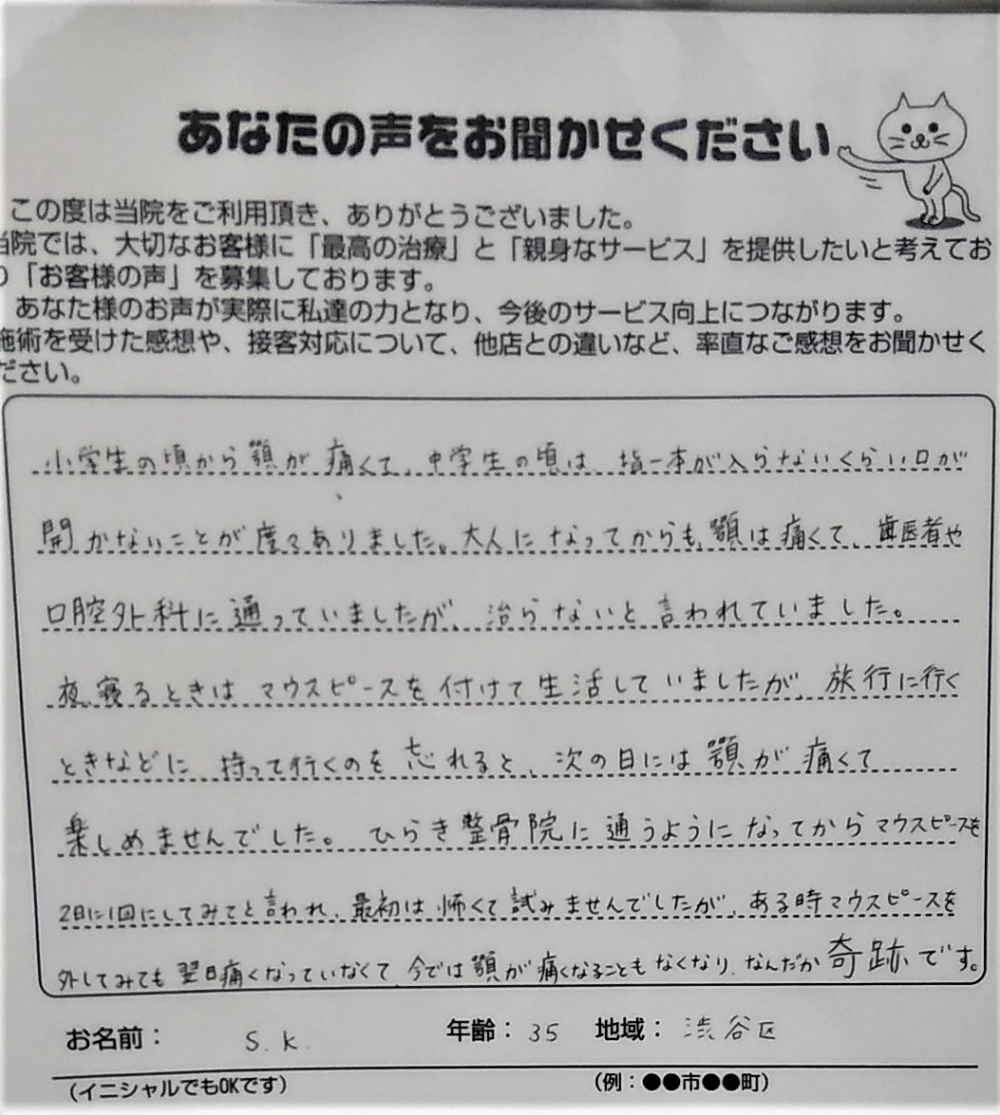 あなたの声をお聞かせください
この度は当院をご利用頂き、ありがとうございました。
当院では、大切なお客様に「最高の治療」と「親身なサービス」を提供したいと考えてお
り「お客様の声」を募集しております。
あなた様のお声が実際に私達の力となり、今後のサービス向上につながります。
施術を受けた感想や、接客対応について、他店との違いなど、率直なご感想をお聞かせく
ださい。
小学生の頃から顎が痛くて、中学生の頃は、指一本が入らないくらい口が
開かないことが度々ありました。大人になってからも、顎は痛くて、歯医者や
口腔外科に通っていましたが、治らないと言われていました。
夜寝るときはマウスピースを付けて生活していましたが、旅行に行く
ときなどに持って行くのを忘れると、次の日には顎が痛くて
楽しめませんでした。ひらき整骨院に通うようになってからマウスピースを
2日に1回にしてみてと言われ、最初は怖くて試みませんでしたが、ある時マウスピースを
外してみても翌日痛くなっていなくて、今では顎が痛くなることもなくなり、なんだか奇跡です。
お名前： S.K. 年齢：35 地域：渋谷区
（イニシャルでもOKです） （例：●●市●●町）